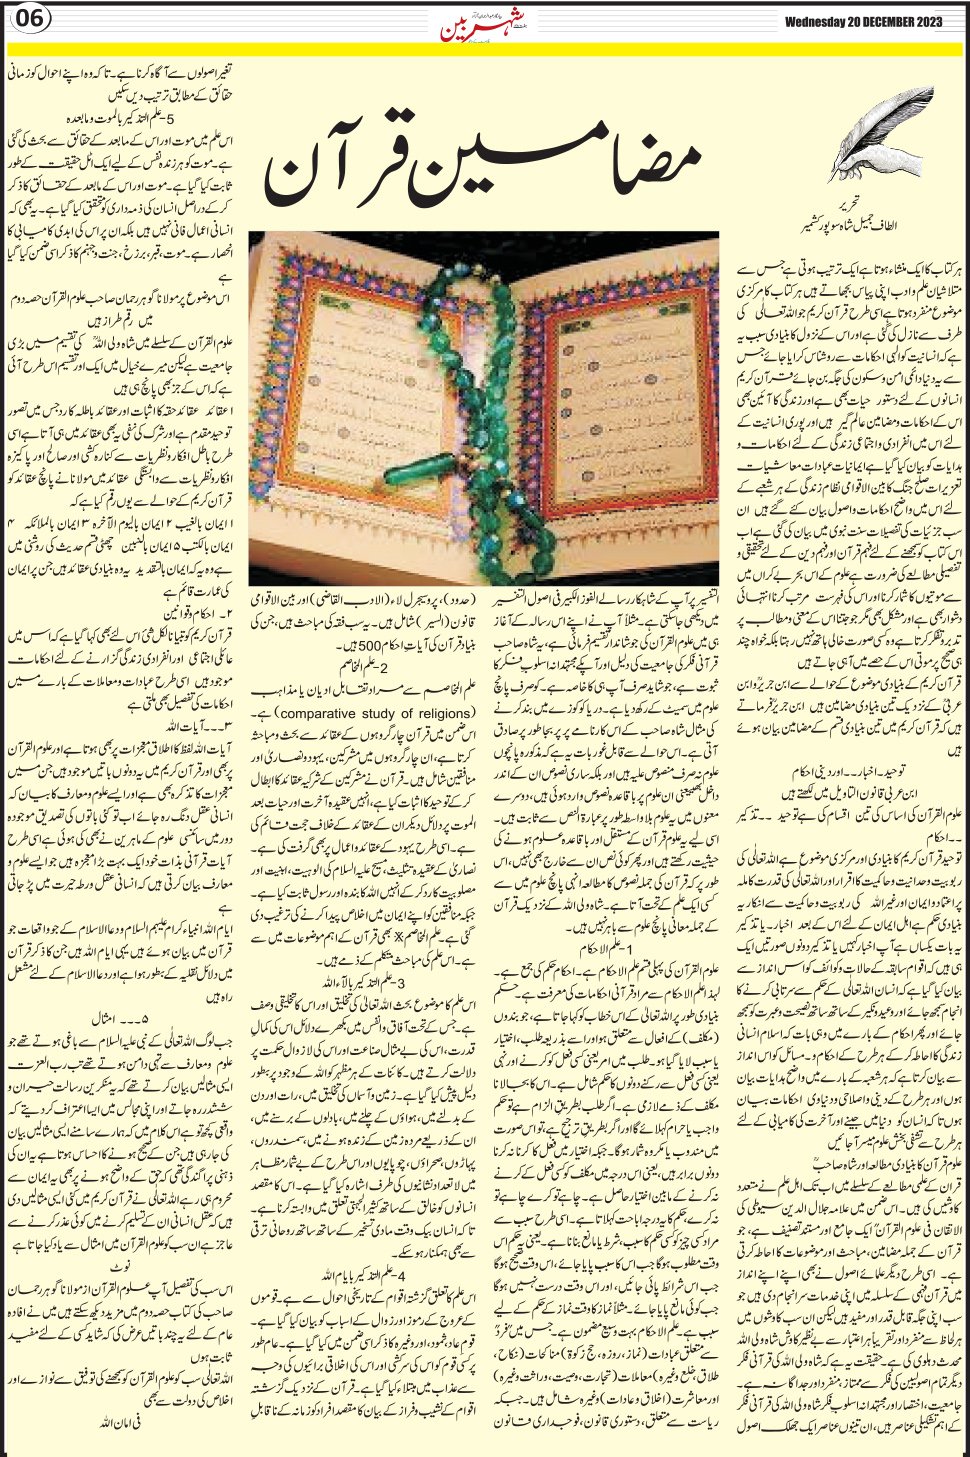 06
شہربین
Wednesday 20 DECEMBER 2023
مضامین قرآن
تحریر
الطاف جمیل شاہ سوپور کشمیر
ہر کتاب کا ایک منشاء ہوتا ہے ایک ترتیب ہوتی ہے جس سے
متلاشیان علم و ادب اپنی پیاس بجھاتے ہیں ہر کتاب کا مرکزی
موضوع منفرد ہوتا ہے اسی طرح قرآن کریم جو اللہ تعالٰی کی
طرف سے نازل کی گئی ہے اور اس کے نزول کا بنیادی سبب یہ
ہے کہ انسانیت کو الہی احکامات سے روشناس کرایا جائے جس
سے یہ دنیا دائمی امن و سکون کی جگہ بن جائے قرآن کریم
انسانوں کے لئے دستور حیات بھی ہے اور زندگی کا آئین بھی
اس کے احکامات و مضامین عالم گیر ہیں اور پوری انسانیت کے
لئے اس میں انفرادی و اجتماعی زندگی کے لئے احکامات و
ہدایات کو بیان کیا گیا ہے ایمانیات عبادات معاشیات
تعزیرات صلح جنگ کا بین الاقوامی نظام زندگی کے ہر شعبے کے
لئے اس میں واضح احکامات و اصول بیان کئے گئے ہیں ان
سب جزئیات کی تفصیلات سنت نبوی میں بیان کی گئی ہے اب
اس کتاب کو سمجھنے کے لئے فہم قرآن اور فہم دین کے لئے تحقیقی و
تفصیلی مطالعے کی ضرورت ہے علوم کے اس بحر بے کراں میں
سے موتیوں کا شمار کرنا اور اس کی فہرست مرتب کرنا انتہائی
دشوار بھی ہے اور مشکل بھی مگر جو جتنا اس کے معنی و مطالب پر
تدبر و تفکر کرتا ہے وہ کسی صورت خالی ہاتھ نہیں رہتا بلکہ خواہ چند
ہی صحیح پر موتی اس کے حصے میں آ ہی جاتے ہیں
قرآن کریم کے بنیادی موضوع کے حوالے سے ابن جریرؒ و ابن
عربیؒ کے نزدیک تین بنیادی مضامین ہیں ابن جریرؒ فرماتے
ہیں کہ قرآن کریم میں تین بنیادی قسم کے مضامین بیان ہوئے
ہیں
توحید۔اخبار۔۔اور دینی احکام
ابن عربی قانون التاویل میں لکھتے ہیں
علوم القرآن کی اساس کی تین اقسام کی ہے توحید ۔۔تذکیر
۔۔احکام
توحید قرآن کریم کا بنیادی اور مرکزی موضوع ہے اللہ تعالی کی
ربوبیت و حدانیت و حاکمیت کا اقرار اور اللہ تعالی کی قدرت کاملہ
پر اعتماد و ایمان اور غیر اللہ کی ربوبیت و حاکمیت سے انکار یہ
بنیادی حکم ہے اہل ایمان کے لئے اس کے بعد اخبار۔یا تذکیر
یہ بات یکساں ہے آپ اخبار کہیں یا تذکیر دونوں صورتیں ایک
ہی ہیں کہ اقوام سابقہ کے حالات و کوائف کو اس انداز سے
بیان کیا گیا ہے کہ انسان اللہ تعالی کے حکم سے سرتابی کرنے کا
انجام سمجھ جائے اور وعید و نکیر کے ساتھ ساتھ نصیحت و عبرت کو سمجھ
جائے اور پھر احکام کے بارے میں وہی بات کہ اسلام انسانی
زندگی کا احاطہ کر کے ہر طرح کے احکام و۔ مسائل کو اس انداز
سے بیان کرتا ہے کہ ہر شعبہ کے بارے میں واضح ہدایات بیان
ہوں اور ہر طرح کے دینی و اصلاحی و دنیاوی احکامات بیان
ہوں تا کہ انسان کو دنیا میں جینے اور آخرت کی کامیابی کے لئے
ہر طرح سے تشفی بخش علوم میسر آجائیں
علوم قرآن کا بنیادی مطالعہ اور شاہ صاحبؒ
قران کے علمی مطالعے کے سلسلے میں اب تک اہل علم نے متعدد
کاوشیں کی ہیں۔ اس ضمن میں علامہ جلال الدین سیوطی کی
الاتقان فی علوم القرآن ایک جامع اور مستند تصنیف ہے، جو
قرآن کے جملہ مضامین، مباحث اور موضوعات کا احاطہ کرتی
ہے۔ اسی طرح دیگر علمائے اصول نے بھی اپنے اپنے انداز
میں قرآن فہمی کے سلسلہ میں اپنی خدمات سرانجام دی ہیں جو
سب اپنی جگہ قابل قدر اور مفید ہیں لیکن ان سب کاوشوں میں
ہر لحاظ سے منفرد اور تقریبا ہر اعتبار سے بے نظیر کاوش شاہ ولی اللہ
محدث دہلوی کی ہے۔ حقیقت یہ ہے کہ شاہ ولی اللہ کی قرآنی فکر
دیگر تمام اصولیین کی فکر سے ممتاز، منفرد اور جداگانہ ہے۔
جامعیت، اختصار اور مجتہدانہ اسلوب فکر شاہ ولی اللہ کی قرآنی فکر
کے اہم تشکیلی عناصر ہیں، ان تینوں عناصر ایک جھلک اصول
التفسیر پر آپ کے شاہکار رسالے الفوز الکبیر فی اصول التفسیر
میں دیکھی جا سکتی ہے۔ مثلاً آپ نے اپنے اس رسالہ کے آغاز
ہی میں علوم القرآن کی جو شاندار تقسیم فرمائی ہے، یہ شاہ صاحب
قرآنی فکر کی جامعیت کی دلیل اور آپکے مجتہدانہ اسلوب فکر کا
ثبوت ہے، جو شاید صرف آپ ہی کا خاصہ ہے۔ کو صرف پانچ
علوم میں سمیٹ کے رکھ دیا ہے۔ دریا کو کوزے میں بند کرنے
کی مثال شاہ صاحب کے اس کارنامے پر پر بجا طور پر صادق
آتی ہے۔ اس حوالے سے قابل غور بات یہ ہے کہ مذکورہ پانچوں
علوم نہ صرف منصوص علیہ ہیں اور بلکہ ساری نصوص ان کے اندر
داخل بھی یعنی ان علوم پر باقاعدہ نصوص وارد ہوئی ہیں، دوسرے
معنوں میں یہ علوم بلا واسطہ طور پر عبارۃ النص سے ثابت ہیں۔
اسی لیے یہ علوم قرآن کے مستقل اور باقاعدہ علوم ہونے کی
حیثیت رکھتے ہیں اور پھر کوئی نص ان سے خارج بھی نہیں، اس
طور پر کہ قرآن کی جملہ نصوص کا مطالعہ انہی پانچ علوم میں سے
کسی ایک علم کے تحت آتا ہے۔ شاہ ولی اللہ کے نزدیک قرآن
کے جملہ معانی پانچ علوم سے باہر نہیں ہیں۔
1-علم الاحکام
علوم القرآن کی پہلی قسم علم الاحکام ہے۔ احکام حکم کی جمع ہے۔
لہذا علم الاحکام سے مراد قرآنی احکامات کی معرفت ہے۔ حکم
بنیادی طور پر اللہ تعالی کے اس خطاب کو کہا جاتا ہے، جو بندوں
(مکلف) کے افعال سے متعلق ہو اور اسے بذریعہ طلب، اختیار
یا سبب لایا گیا ہو۔ طلب میں امر یعنی کسی فعل کو کرنے اور نہی
یعنی کسی فعل سے رکنے دونوں کا حکم شامل ہے۔ اس کا بجا لانا
مکلف کے ذمے لازمی ہے۔ اگر طلب بطریق الزام ہے تو حکم
واجب یا حرام کہلائے گا اور اگر بطریق ترجیح ہے، تو اس صورت
میں مندوب یا مکروہ شمار ہوگا۔ جبکہ اختیار میں فعل کا کرنا نہ کرنا
دونوں برابر ہیں، یعنی اس درجہ میں مکلف کو کسی فعل کے کرنے
نہ کرنے کے مابین اختیار حاصل ہے۔ چاہے تو کرے چاہے تو
نہ کرے، حکم کا یہ درجہ اباحت کہلاتا ہے۔ اسی طرح سبب سے
مراد کسی چیز کو کسی حکم کا سبب، شرط یا مانع بنانا ہے۔ یعنی یہ حکم اس
وقت مطلوب ہوگا جب اس کا سبب پایا جائے، اس وقت صحیح ہوگا
جب اس شرائط پائی جائیں، اور اس وقت درست نہیں ہوگا
جب کوئی مانع پایا جائے۔ مثلاً نماز کا وقت نماز کے حکم کے لیے
سبب ہے۔ علم الاحکام بہت وسیع مضمون ہے۔ جس میں فرد
سے متعلق عبادات (نماز، روزہ، حج زکوۃ) مناکحات (نکاح،
طلاق خلع وغیرہ) معاملات (تجارت، وصیت، وراثت وغیرہ)
اور معاشرت (اخلاق و عادات) وغیرہ شامل ہیں۔ جبکہ
ریاست سے متعلق، دستوری قانون، فوجداری قانون
(حدود)، پروسیجرل لاء (الادب القاضی) اور بین الاقوامی
قانون (السیر) شامل ہیں۔ یہ سب فقہ کی مباحث ہیں، جن کی
بنیاد قرآن کی آیات احکام 500 ہیں۔
2-علم الخاصم
علم الخاصم سے مراد تقابل ادیان یا مذاہب
(comparative study of religions) ہے۔
اس ضمن میں قرآن چار گروہوں کے عقائد سے بحث و مباحثہ
کرتا ہے، ان چار گروہوں میں مشرکین، یہود و نصاریٰ اور
منافقین شامل ہیں۔ قرآن نے مشرکین کے شرکیہ عقائد کا ابطال
کر کے توحید کا اثبات کیا ہے، انہیں عقیدہ آخرت اور حیات بعد
الموت پر دلائل دیکر ان کے عقائد کے خلاف حجت قائم کی
ہے۔ اسی طرح یہود کے عقائد و اعمال پر بھی گرفت کی ہے۔
نصاریٰ کے عقیدہ تثلیث، مسیح علیہ السلام کی الوہیت، ابنیت اور
مصلوبیت کا رد کر کے انہیں اللہ کا بندہ اور رسول ثابت کیا ہے۔
جبکہ منافقین کو اپنے ایمان میں اخلاص پیدا کرنے کی ترغیب دی
گئی ہے۔ علم الخاصم x بھی قرآن کے اہم موضوعات میں سے
ہے۔ اس علم کی مباحث متکلم کے ذمے ہیں۔
3-علم التذکیر بالآءاللہ
اس علم کا موضوع بحث اللہ تعالی کی تخلیق اور اس کا تخلیقی وصف
ہے۔ جس کے تحت آفاق و انفس میں بکھرے دلائل اس کی کمال
قدرت، اس کی بے مثال صناعت اور اس کی لازوال حکمت پر
دلالت کرتے ہیں۔ کائنات کے ہر مظہر کو اللہ کے وجود پر بطور
دلیل پیش کیا گیا ہے۔ زمین و آسماں کی تخلیق میں، رات اور دن
کے بدلنے میں، ہواؤں کے چلنے میں، بادلوں کے برسنے میں،
ان کے ذریعے مردہ زمین کے زندہ ہونے میں، سمندروں،
پہاڑوں، صحراؤں، چوپایوں اور اس طرح کے بے شمار مظاہر
میں لاتعداد نشانیوں کی طرف اشارہ کیا گیا ہے۔ اس کا مقصد
انسانوں کو خالق کے ساتھ کثیر الجہتی تعلق میں وابستہ کرنا ہے۔
تاکہ انسان بیک وقت مادی تسخیر کے ساتھ ساتھ روحانی ترقی
سے بھی ہمکنار ہو سکے۔
4-علم التذکیر بایام اللہ
اس علم کا تعلق گزشتہ اقوام کے تاریخی احوال سے ہے۔ قوموں
کے عروج کے رموز اور زوال کے اسباب کو بیان کیا گیا ہے۔
قوم عاد، ثمود، اور وغیرہ کا ذکر اسی ضمن میں کیا گیا ہے۔ عام طور
پر کسی قوم کو اس کی سرکشی اور اس کی اخلاقی برائیوں کی وجہ
سے عذاب میں مبتلاء کیا گیا ہے۔ قرآن کے نزدیک گزشتہ
اقوام کے نشیب و فراز کے بیان کا مقصد افراد کو زمانہ کے ناقابل
تغیر اصولوں سے آگاہ کرنا ہے۔ تاکہ وہ اپنے احوال کو زمانی
حقائق کے مطابق ترتیب دیں سکیں
5-علم التذکیر بالموت و مابعدہ
اس علم میں موت اور اس کے مابعد کے حقائق سے بحث کی گئی
ہے۔ موت کو ہر زندہ نفس کے لیے ایک اٹل حقیقت کے طور
ثابت کیا گیا ہے۔ موت اور اس کے مابعد کے حقائق کا ذکر
کر کے دراصل انسان کی ذمہ داری کو متحقق کیا گیا ہے۔ یہ بھی کہ
انسانی اعمال فانی نہیں ہیں بلکہ ان پر اس کی ابدی کامیابی کا
انحصار ہے۔ موت، قبر، برزخ، جنت و جہنم کا ذکر اسی ضمن کیا گیا
ہے
اس موضوع پر مولانا گوہر رحمان صاحب علوم القرآن حصہ دوم
میں رقم طراز ہیں
علوم القرآن کے سلسلے میں شاہ ولی اللہؒ کی تقسیم میں بڑی
جامعیت ہے لیکن میرے خیال میں ایک اور تقسیم اس طرح آئی
ہے کہ اس کے جز بھی پانچ ہی ہیں
۱ عقائد عقائد حقہ کا اثبات اور عقائد باطلہ کا رد جس میں تصور
توحید مقدم ہے اور شرک کی نفی یہ بھی عقائد میں ہی آتا ہے اسی
طرح باطل افکار و نظریات سے کنارہ کشی اور صالح اور پاکیزہ
افکار و نظریات سے وابستگی عقائد میں مولانا نے پانچ عقائد کو
قرآن کریم کے حوالے سے یوں رقم کیا ہے کہ
۱ ایمان بالغیب ۲ ایمان بالیوم الآخرہ ۳ ایمان بالملائکہ ۴
ایمان بالکتب ۵ ایمان بالنبین چھٹی قسم حدیث کی روشنی میں
ہے وہ یہ کہ ایمان بالتقدیر یہ وہ بنیادی عقائد ہیں جن پر ایمان
کی عمارت قائم ہے
۲۔ احکام و قوانین
قرآن کریم کو تبیانا لکل شئ اس لئے بھی کہا گیا ہے کہ اس میں
عائلی اجتماعی اور انفرادی زندگی گزارنے کے لئے احکامات
موجود ہیں اسی طرح عبادات و معاملات کے بارے میں
احکامات کی تفصیل بھی ملتی ہے
۳۔۔۔آیات اللہ
آیات اللہ لفظ کا اطلاق معجزات پر بھی ہوتا ہے اور علوم القرآن
پر بھی اور قرآن کریم میں یہ دونوں باتیں موجود ہیں جن میں
معجزات کا تذکرہ بھی ہے اور ایسے علوم و معارف کا بیان کہ
انسانی عقل دنگ رہ جائے اب تو کئی باتوں کی تصدیق موجودہ
دور میں سائنسی علوم کے ماہرین نے بھی کی ہوئی ہے اسی طرح
آیات قرآنی بذات خود ایک بہت بڑا معجزہ ہیں جو ایسے علوم و
معارف بیان کرتی ہیں کہ انسانی عقل ورطہ حیرت میں پڑ جاتی
ہے
ایام اللہ انبیاء کرام علیہم السلام و دعاۃ الاسلام کے جو واقعات جو
قرآن میں بیان ہوئے ہیں یہی ایام اللہ ہیں جن کا ذکر قرآن
میں دلائل نقلیہ کے بطور ہوا ہے اور دعاۃ الاسلام کے لئے مشعل
راہ ہیں
۵۔۔۔ امثال
جب لوگ اللہ تعالٰی کے نبی علیہ السلام سے باغی ہوتے تھے جو
علوم و معارف سے تہی دامن ہوتے تھے تب رب العزت
ایسی مثالیں بیان کرتے تھے کہ یہ منکرین رسالت حیران و
ششدر رہ جاتے اور اپنی مجالس میں ایسا اعتراف کر دیتے کہ
واقعی کچھ تو ہے اس کلام میں کہ ہمارے سامنے ایسی مثالیں بیان
کی جا رہی ہیں جن کے صحیح ہونے کا احساس ہوتا ہے یہ ان کی
ذہنی پراگندگی تھی کہ حق کے واضح ہونے پر بھی یہ ایمان سے
محروم ہی رہے اللہ تعالی نے قرآن کریم میں کئی ایسی مثالیں دی
ہیں کہ عقل انسانی ان کے تسلیم کرنے میں کوئی عذر کرنے سے
عاجز ہے ان سب کو علوم القرآن میں امثال سے یاد کیا جاتا ہے
نوٹ
اس سب کی تفصیل آپ علوم القرآن از مولانا گوہر رحمان
صاحب کی کتاب حصہ دوم میں مزید دیکھ سکتے ہیں میں نے افادہ
عام کے لئے یہ چند باتیں عرض کی کہ شاید کسی کے لئے مفید
ثابت ہوں
اللہ تعالٰی سب کو علوم القرآن کو سمجھنے کی توفیق سے نوازے اور
اخلاص کی دولت سے بھی
فی امان اللہ